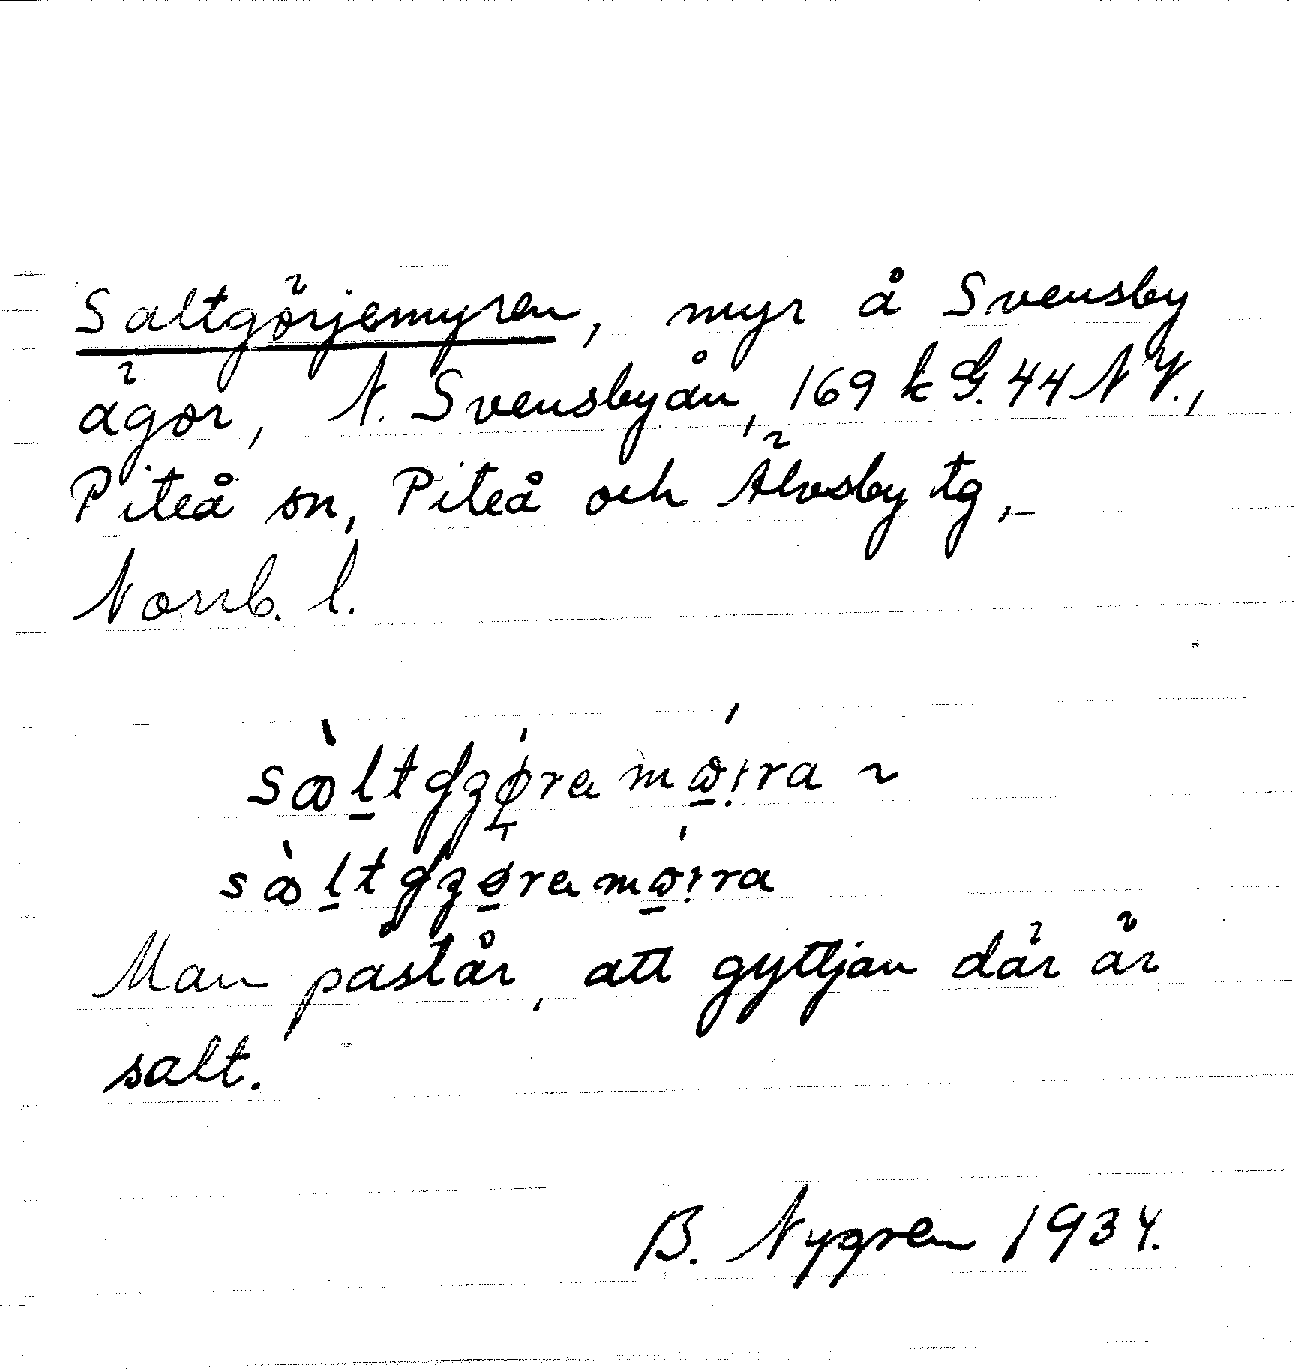 Saltgörjemyren, myr å Svensby
ägor, N. Svensbyån, 169 k G. 44 N V.,
Piteå sn, Piteå och Älvsby tg,
Norrb. l.
Man påstår, att gyttjan där är
salt.
B. Nygren 1934.